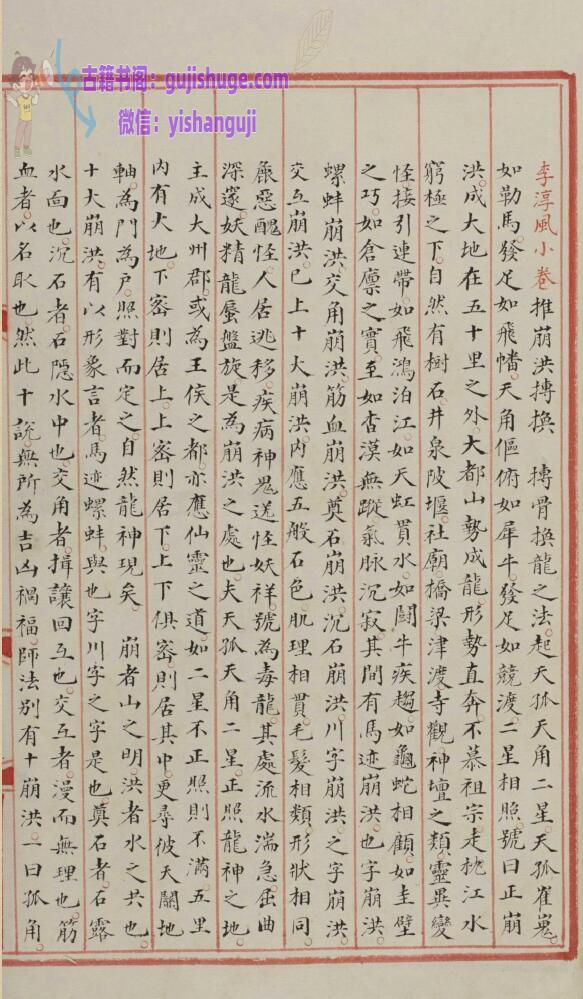 古籍书阁：gujishuge.com
微信：yishanguji
李淳風小卷 推崩洪摶換 摶骨換龍之法起天孤天角二星天孤崔嵬
如勒馬發足如飛幡天角傴俯如犀牛發足如競渡二星相照號曰正崩
洪成大地在五十里之外大都山勢成龍形勢直奔不慕祖宗走枕江水
窮極之下自然有樹石井泉陂堰社廟橋梁津渡寺觀神壇之類靈異變
怪接引連帶如飛鴻泊江如天虹貫水如鬪牛疾趨如龜蛇相顧如圭璧
之巧如倉廪之實至如杳漠無蹤氣脉沉寂其間有馬迹崩洪也字崩洪
螺蚌崩洪交角崩洪筋血崩洪奠石崩洪沉石崩洪川字崩洪之字崩洪
交互崩洪已上十大崩洪内應五般石色肌理相貫毛髮相類形狀相同
麄惡醜怪人居逃移疾病神鬼送怪妖祥號為毒龍其處流水湍急屈曲
深邃妖精龍蜃盤旋是為崩洪之處也夫天孤天角二星正照龍神之地
主成大州郡或為王侯之都亦應仙靈之道如二星不正照則不滿五里
内有大地下密則居上上密則居下上下俱密則居其中更尋彼天關地
軸為門為戶照對而定之自然龍神現矣 崩者山之明洪者水之共也
十大崩洪有以形象言者馬迹螺蚌與也字川字之字是也奠石者石露
水面也沉石者石隱水中也交角者揖讓回互也交互者漫而無理也筋
血者以名取也然此十說無所為吉凶禍福師法别有十崩洪一曰孤角